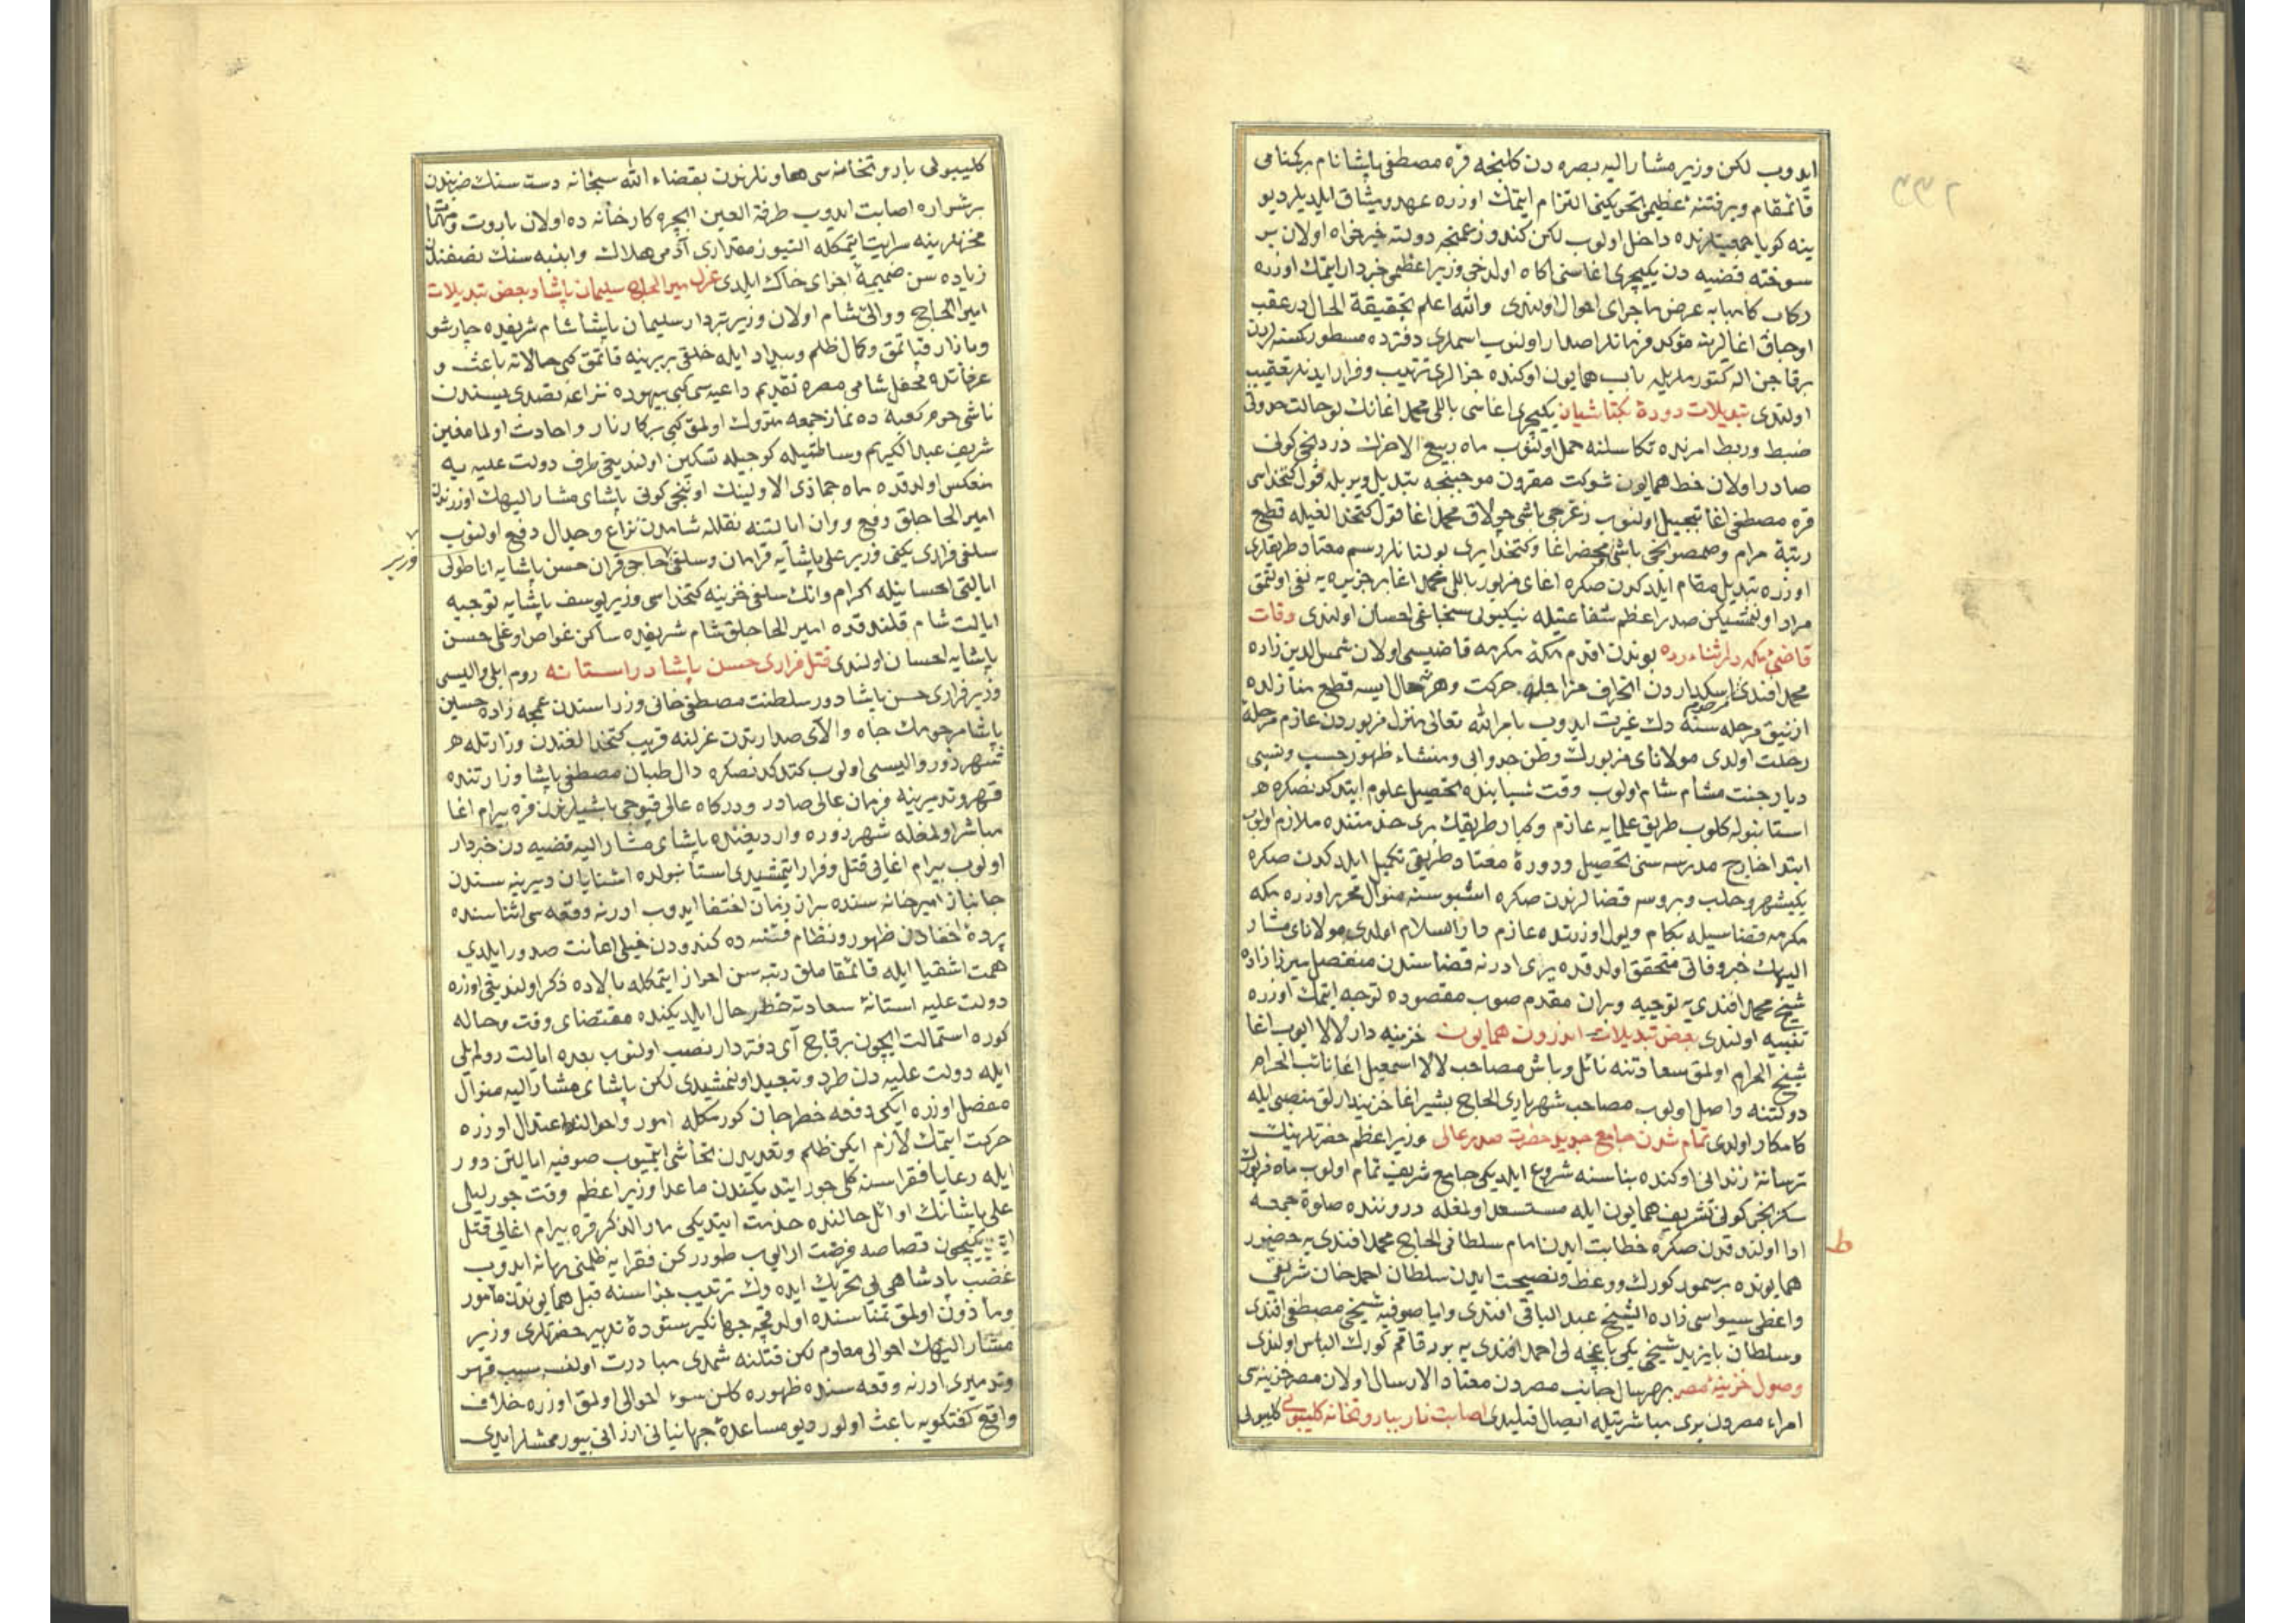 ايدوب لكن وزير مشار اليه بصره دن كلنجه قره مصطفى پاشا نام بركمنامى
قائمقام وبر فتنۀ عظيمى تحريكينى التزام ايتمك اوزره عهد وميثاق ايلديلر ديو
ينه كويا جمعيتلرنده داخل اولوب لكن كندو زعمنجه دولته خيرخواه اولان بر
سوخته قضيه دن يكيچرى اغاسنى اكاه اولدخى وزير اعظمى خبردار ايتمك اوزره
ركاب كاميابه عرض ماجراى احوال اولندى والله اعلم بحقيقة الحال درعقب
اوجاق اغالرينه مؤكد فرمانلر اصدار اولنوب اسملرى دفترده مسطور
برقاجن اله كتورملريله باب همايون اوكنده جزالرى ترتيب وفرار ايدنلر تعقيب
اولندى تبديلات دورۀ بكتاشيان يكيچرى اغاسى باللى محمد اغانك
ضبط وربط امرنده تكاسلنه حمل اولنوب ماه ربيع الاخرك دردنجى كونى
صادر اولان خط همايون شوكت مقرون موجبنجه تبديل ويريله قول كتخداسى
قره مصطفى اغا تبجيل اولنوب زغرجى باشى چولاق محمد اغا قول كتخدالغيله قطع
رتبۀ مرام وصمصونجى باشى ومحضر اغا وكتخدا يرى بولنانلر رسم معتاد طريقلرى
اوزره تبديل مقام ايلدكدن صكره اغاى مزبور باللى محمد اغا بر جزيره يه نفى اولنمق
مراد اولنمشيكن صدر اعظم شفاعتيله نيكبولى سنجاغى احسان اولندى وفات
قاضئ مكه در اثناء ره بوندن اقدم مكۀ مكرمه قاضيسى اولان شمس الدين زاده
محمد افندى اسكداردن انحراف مزاجله حركت وهر نه حال ايسه قطع منازلده
ازنيق مرحله سنه دك غيرت ايدوب بامر الله تعالى منزل مزبوردن عازم مرحلۀ
رحلت اولدى مولاناى مزبورك وطن جدوابى ومنشاء ظهور حسب ونسبى
ديار جنت مشام شام اولوب وقت شبابنده تحصيل علوم ايتدكدنصكره
استانبوله كلوب طريق علمايه عازم وكبار طريقك برى خدمتنده ملازم اولوب
ابتدا خارج مدرسه سنى تحصيل ودورۀ معتاد طريقى تكميل ايلدكدن صكره
يكيشهر وحلب وبروسه قضالرندن صكره اشبو سنه منوال محرر اوزره مكه
مكرمه قضاسيله بكام ويول اوزرنده عازم دار السلام اولدى مولاناى مشار
اليهك خبر وفاتى متحقق اولدقده يرى ادرنه قضاسندن منفصل ميرزا زاده
شيخ محمد افندى يه توجيه وبر ان مقدم صوب مقصوده توجه ايتمك اوزره
تنبيه اولندى بعض تبديلات اندرون همايون خزينه دار لالا ايوب اغا
شيخ الحرم اولمق سعادتنه نائل وباش مصاحب لالا اسمعيل اغا نائب الحرم
دولتنه واصل اولوب مصاحب شهريارى الحاج بشير اغا خزينه دارلق منصبى ايله
كامكار اولدى تمام شدن جامع جديد حضرت صدر عالى وزير اعظم حضرتلرينك
ترسانۀ زندانى اوكنده بناسنه شروع ايلديكى جامع شريف تمام اولوب ماه مزبورك
سكزنجى كونى تشريف همايون ايله مستسعد اولمغله دروننده صلوة جمعه
ادا اولندقدن صكره خطابت ايدن امام سلطانى الحاج محمد افندى يه حضور
همايونده بر سمور كورك ووعظ ونصيحت ايدن سلطان احمد خان شريفى
واعظى سيواسى زاده الشيخ عبد الباقى افندى واياصوفيه شيخى مصطفى افندى
وسلطان بايزيد شيخى يكى باغچه لى احمد افندى يه بورقاقم كورك الباس اولندى
وصول خزينۀ مصر بر هر سال جانب مصردن معتاد الارسال اولان مصر خزينه سى
امراء مصردن برى مباشرتيله ايصال قيلندى اصابت نار ببارو تخانه كليبولى كليبولى
ط
كليبولى باروتخانه سى هاونلرندن بقضاء الله سبحانه دست سنك ضربندن
بر شراره اصابت ايدوب طرفة العين ايچره كارخانه ده اولان باروت ومهمات
مخزنلرينه سرايت ايتمكله التيوز مقدارى آدمى هلاك وابنيه سنك نصفندن
زياده سن ضميمۀ اجزاى خاك ايلدى عزل مير الحاج سليمان پاشا وبعض تبديلات
امير الحاج ووالئ شام اولان وزير تبردار سليمان پاشا شام شريفده چارشو
وبازار قپاتمق وكال ظلم وبيداد ايله خلقى بربرينه قاتمق كبى حالاته باعث و
عرفاتده محفل شامى مصره تقديم داعيه سى كبى بيهوده نزاعه تصدى
ناشى حرم كعبه ده نماز جمعه متروك اولمق كبى بركار نار واحادث اولمامغين
شريف عبد الكريم وساطتيله كوجيله تسكين اولنديغى طرف دولت عليه يه
منعكس اولدقده ماه جماذى الاولينك اوننجى كونى پاشاى مشار اليهك اوزرندن
امير الحاجلق رفع ووان ايالتنه نقلله شامدن نزاع وجدال دفع اولنوب
سلفى فرارى يكنى وزير على پاشايه قرامان وسلفى حاجى قران حسن پاشايه اناطولى
وزير
ايالتى احسانيله اكرام وانك سلفى خزينه كتخداسى وزير يوسف پاشايه توجيه
ايالت شام قلندقده امير الحاجلق شام شريفده ساكن غواص اوغلى حسن
پاشايه احسان اولندى قتل فرارى حسن پاشا در استانه روم ايلى واليسى
وزير فرارى حسن پاشا دور سلطنت مصطفى خانى وزراسندن عمجه زاده حسين
پاشا مرحومك جاه والاى صدارتدن عزلنه قريب كتخدالغندن وزارتله
شهرذور واليسى اولوب كتدكدنصكره دال طبان مصطفى پاشا وزارتنده
قهر وتدميرينه فرمان عالى صادر ودركاه عالى قپوجى باشيلرندن قره بيرام اغا
مباشر اولمغله شهرذوره وارديغنده پاشاى مشار اليه قضيه دن خبردار
اولوب بيرام اغايى قتل وفرار ايتمشيدى استانبولده اشنايان ديرينه سندن
جانباز اميرخانه سنده بر از زمان اختفا ايدوب ادرنه وقعه سى اثناسنده
پردۀ اخفادن ظهور ونظام فتنه ده كندودن خيلى اعانت صدور ايلدي
همت اشقيا ايله قائمقاملق رتبه سن احراز ايتمكله بالاده ذكر اولنديغى اوزره
دولت عليه استانۀ سعادته حط رحال ايلديكنده مقتضاى وقت وحاله
كوره استمالت ايچون برقاج آى دفتردار نصب اولنوب بعده ايالت روم ايلى
ايله دولت عليه دن طرد وتبعيد اولنمشيدى لكن پاشاى مشار اليه منوال
مفصل اوزره ايكى دفعه خطر جان كورمكله امور واحوالنده اعتدال اوزره
حركت ايتمك لازم ايكن ظلم وتعديدن تحاشى ايتميوب صوفيه ايالتن دور
ايله رعايا فقراسنه كلى جور ايتديكندن ماعدا وزير اعظم وقت چورليلى
على پاشانك اوائل حالنده خدمت ايتديكى مار الذكر قره بيرام اغايى قتل
ايتديكيچون قصاصه فرصت ارايوب طوررکن فقرايه ظلمنى بهانه ايدوب
غضب پادشاهى يى تحريك ايده رك ترتيب جزاسنه قبل همايوندن مأمور
ومأذون اولمق تمناسنده اولدقجه جهانكير ستودۀ تدبير حضرتلرى وزير
مشار اليهك احوالى معلوم لكن قتلنه شمدى مبادرت اولنسه سبب قهر
وتدميرى ادرنه وقعه سنده ظهوره كلن سوء احوالى اولمق اوزره خلاف
واقع كفتكويه باعث اولور ديو مساعدۀ جهانبانى ارزانى بيورممشلر ايدى